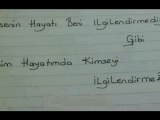 senin Hayatı Beni İlgilendirmediği
Gibi
im Hayatımda Kimseyi
İlgilendirmez